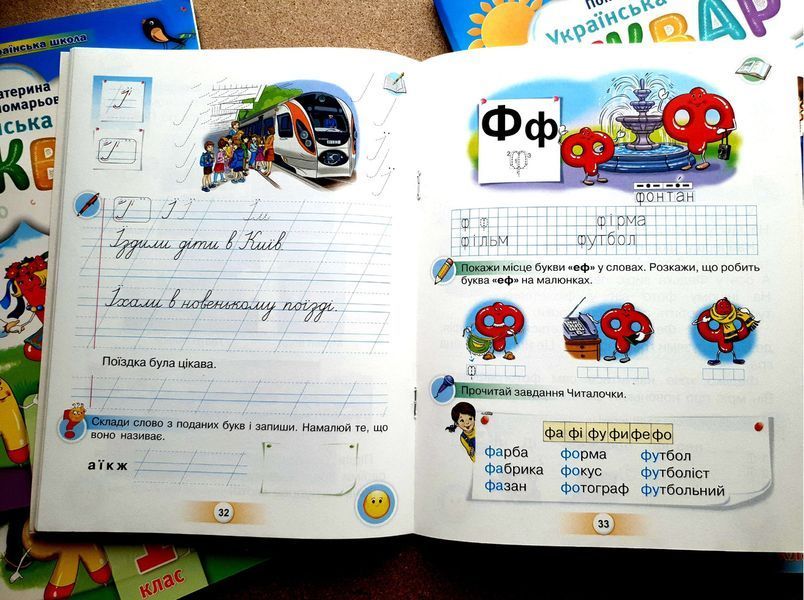 раїнська школа
атерина
номарьов
нська
клас
Українська
ВАР
Ї
Ї
Ї Ї Ї Їм
Їздили діти в Київ.
Їхали в новенькому поїзді.
Поїздка була цікава.
Склади слово з поданих букв і запиши. Намалюй те, що
воно називає.
а ї к ж
32
Ф ф
фонтан
ф ф фірма
фільм футбол
Покажи місце букви «еф» у словах. Розкажи, що робить
буква «еф» на малюнках.
Прочитай завдання Читалочки.
фа фі фу фи фе фо
фарба форма футбол
фабрика фокус футболіст
фазан фотограф футбольний
33